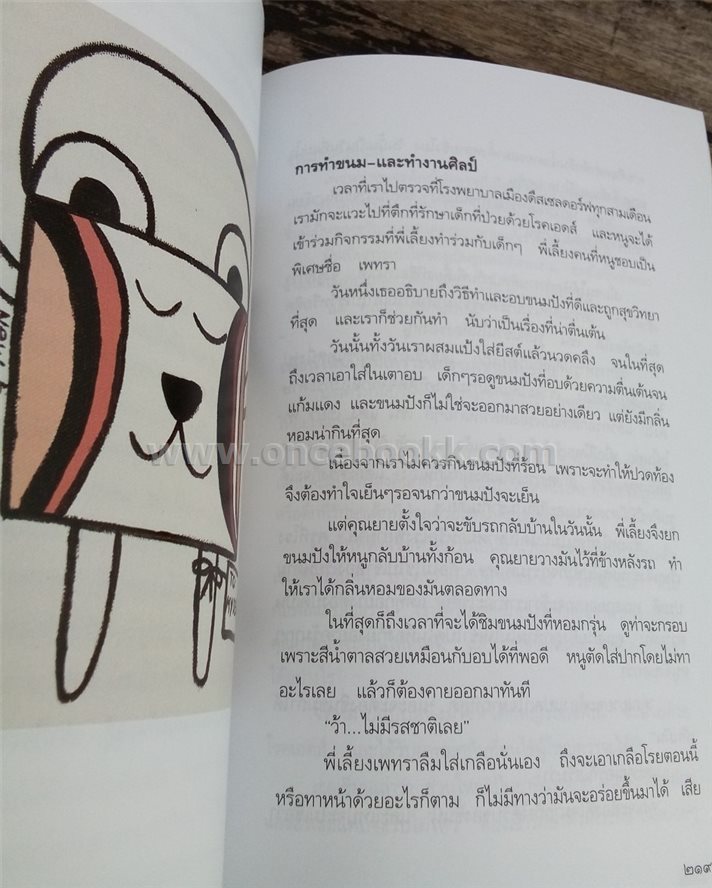 การทำขนม–และทำงานศิลป์
เวลาที่เราไปตรวจที่โรงพยาบาลเมืองดืสเซลดอร์ฟทุกสามเดือน
เรามักจะแวะไปที่ตึกที่รักษาเด็กที่ป่วยด้วยโรคเอดส์ และหนูจะได้
เข้าร่วมกิจกรรมที่พี่เลี้ยงทำร่วมกับเด็กๆ พี่เลี้ยงคนที่หนูชอบเป็น
พิเศษชื่อ เพทรา
วันหนึ่งเธออธิบายถึงวิธีทำและอบขนมปังที่ดีและถูกสุขวิทยา
ที่สุด และเราก็ช่วยกันทำ นับว่าเป็นเรื่องที่น่าตื่นเต้น
วันนั้นทั้งวันเราผสมแป้งใส่ยีสต์แล้วนวดคลึง จนในที่สุด
ถึงเวลาเอาใส่ในเตาอบ เด็กๆรอดูขนมปังที่อบด้วยความตื่นเต้นจน
แก้มแดง และขนมปังก็ไม่ใช่จะออกมาสวยอย่างเดียว แต่ยังมีกลิ่น
หอมน่ากินที่สุด
www.oncebookk.com
เนื่องจากเราไม่ควรกินขนมปังที่ร้อน เพราะจะทำให้ปวดท้อง
จึงต้องทำใจเย็นๆรอจนกว่าขนมปังจะเย็น
แต่คุณยายตั้งใจว่าจะขับรถกลับบ้านในวันนั้น พี่เลี้ยงจึงยก
ขนมปังให้หนูกลับบ้านทั้งก้อน คุณยายวางมันไว้ที่ข้างหลังรถ ทำ
ให้เราได้กลิ่นหอมของมันตลอดทาง
ในที่สุดก็ถึงเวลาที่จะได้ชิมขนมปังที่หอมกรุ่น ดูท่าจะกรอบ
เพราะสีน้ำตาลสวยเหมือนกับอบได้ที่พอดี หนูตัดใส่ปากโดยไม่ทา
อะไรเลย แล้วก็ต้องคายออกมาทันที
“ว้า...ไม่มีรสชาติเลย”
พี่เลี้ยงเพทราลืมใส่เกลือนั่นเอง ถึงจะเอาเกลือโรยตอนนี้
หรือทาหน้าด้วยอะไรก็ตาม ก็ไม่มีทางว่ามันจะอร่อยขึ้นมาได้ เสีย
๒๑๙